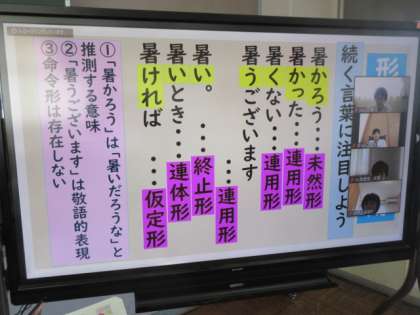 形
続く言葉に注目しよう
暑かろう…未然形
暑かった…連用形
暑くない…連用形
暑うございます
…連用形
暑い。…終止形
暑いとき…連体形
暑ければ…仮定形
①「暑かろう」は「暑いだろうな」と
推測する意味
②「暑うございます」は敬語的表現
③命令形は存在しない